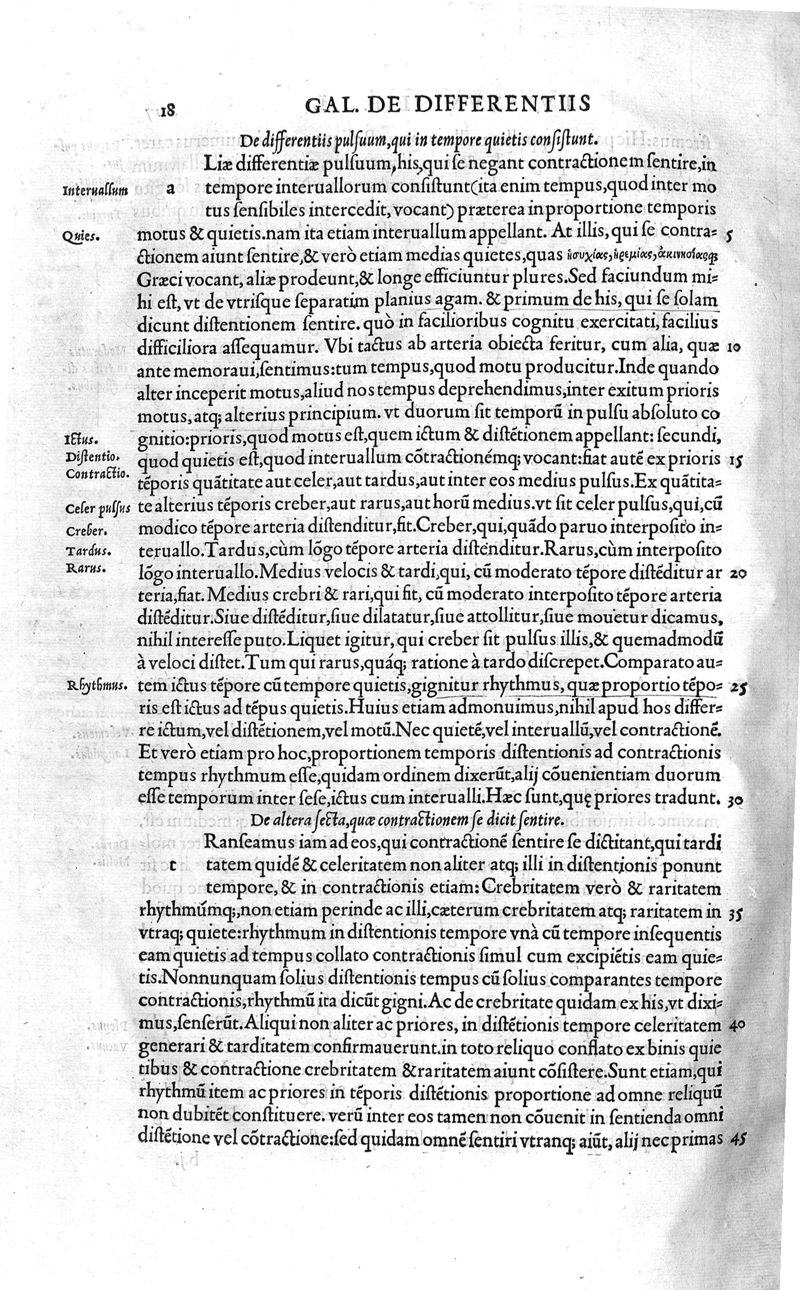 18 GAL. DE DIFFERENTIIS
De differentiis pulſuum,qui in tempore quietis conſiſtunt.
Liæ differentiæ pulſuum,his,qui ſe negant contractionem ſentire,in
Interuallum a tempore interuallorum conſiſtunt(ita enim tempus,quod inter mo
tus ſenſibiles intercedit,vocant) præterea in proportione temporis
Quies. motus & quietis.nam ita etiam interuallum appellant. At illis,qui ſe contra= 5
ctionem aiunt ſentire,& verò etiam medias quietes,quas ἡσυχίας,ἠρεμίας,ἀκινησίασqꝫ
Græci vocant, aliæ prodeunt,& longe efficiuntur plures.Sed faciundum mi=
hi eſt, vt de vtriſque ſeparatim planius agam. & primum de his, qui ſe ſolam
dicunt diſtentionem ſentire. quò in facilioribus cognitu exercitati, facilius
difficiliora aſſequamur. Vbi tactus ab arteria obiecta feritur, cum alia, quæ 10
ante memoraui,ſentimus:tum tempus,quod motu producitur.Inde quando
alter inceperit motus,aliud nos tempus deprehendimus,inter exitum prioris
motus,atqꝫ alterius principium. vt duorum ſit temporū in pulſu abſoluto co
Ictus. gnitio:prioris,quod motus eſt,quem ictum & diſtētionem appellant: ſecundi,
Diſtentio. quod quietis eſt,quod interuallum cōtractionémqꝫ vocant:fiat autē ex prioris 15
Contractio. tēporis quātitate aut celer,aut tardus,aut inter eos medius pulſus.Ex quātita=
Celer pulſus te alterius tēporis creber,aut rarus,aut horū medius.vt ſit celer pulſus,qui,cū
Creber. modico tēpore arteria diſtenditur,fit.Creber,qui,quādo paruo interpoſito in=
Tardus. teruallo.Tardus,cùm lōgo tēpore arteria diſtenditur.Rarus,cùm interpoſito
Rarus. lōgo interuallo.Medius velocis & tardi,qui, cū moderato tēpore diſtēditur ar 20
teria,fiat. Medius crebri & rari,qui fit, cū moderato interpoſito tēpore arteria
diſtēditur.Siue diſtēditur,ſiue dilatatur,ſiue attollitur,ſiue mouetur dicamus,
nihil intereſſe puto. Liquet igitur, qui creber ſit pulſus illis,& quemadmodū
à veloci diſtet.Tum qui rarus,quáqꝫ ratione à tardo diſcrepet.Comparato au=
Rhythmus. tem ictus tēpore cū tempore quietis,gignitur rhythmus, quæ proportio tēpo= 25
ris eſt ictus ad tēpus quietis.Huius etiam admonuimus,nihil apud hos differ=
re ictum,vel diſtētionem,vel motū.Nec quietē,vel interuallū,vel contractionē.
Et verò etiam pro hoc,proportionem temporis diſtentionis ad contractionis
tempus rhythmum eſſe,quidam ordinem dixerūt,alij cōuenientiam duorum
eſſe temporum inter ſeſe,ictus cum interualli.Hæc ſunt,quę priores tradunt. 30
De altera ſecta,quæ contractionem ſe dicit ſentire.
Ranſeamus iam ad eos,qui contractionē ſentire ſe dictitant,qui tardi
t tatem quidē & celeritatem non aliter atqꝫ illi in diſtentionis ponunt
tempore, & in contractionis etiam: Crebritatem verò & raritatem
rhythmúmqꝫ,non etiam perinde ac illi,cæterum crebritatem atqꝫ raritatem in 35
vtraqꝫ quiete:rhythmum in diſtentionis tempore vnà cū tempore inſequentis
eam quietis ad tempus collato contractionis ſimul cum excipiētis eam quie=
tis.Nonnunquam ſolius diſtentionis tempus cū ſolius comparantes tempore
contractionis,rhythmū ita dicūt gigni.Ac de crebritate quidam ex his,vt dixi=
mus,ſenſerūt.Aliqui non aliter ac priores, in diſtētionis tempore celeritatem 40
generari & tarditatem confirmauerunt.in toto reliquo conflato ex binis quie
tibus & contractione crebritatem & raritatem aiunt cōſiſtere.Sunt etiam,qui
rhythmū item ac priores in tēporis diſtētionis proportione ad omne reliquū
non dubitēt conſtituere. verū inter eos tamen non cōuenit in ſentienda omni
diſtētione vel cōtractione:ſed quidam omnē ſentiri vtranqꝫ aiūt, alij nec primas 45